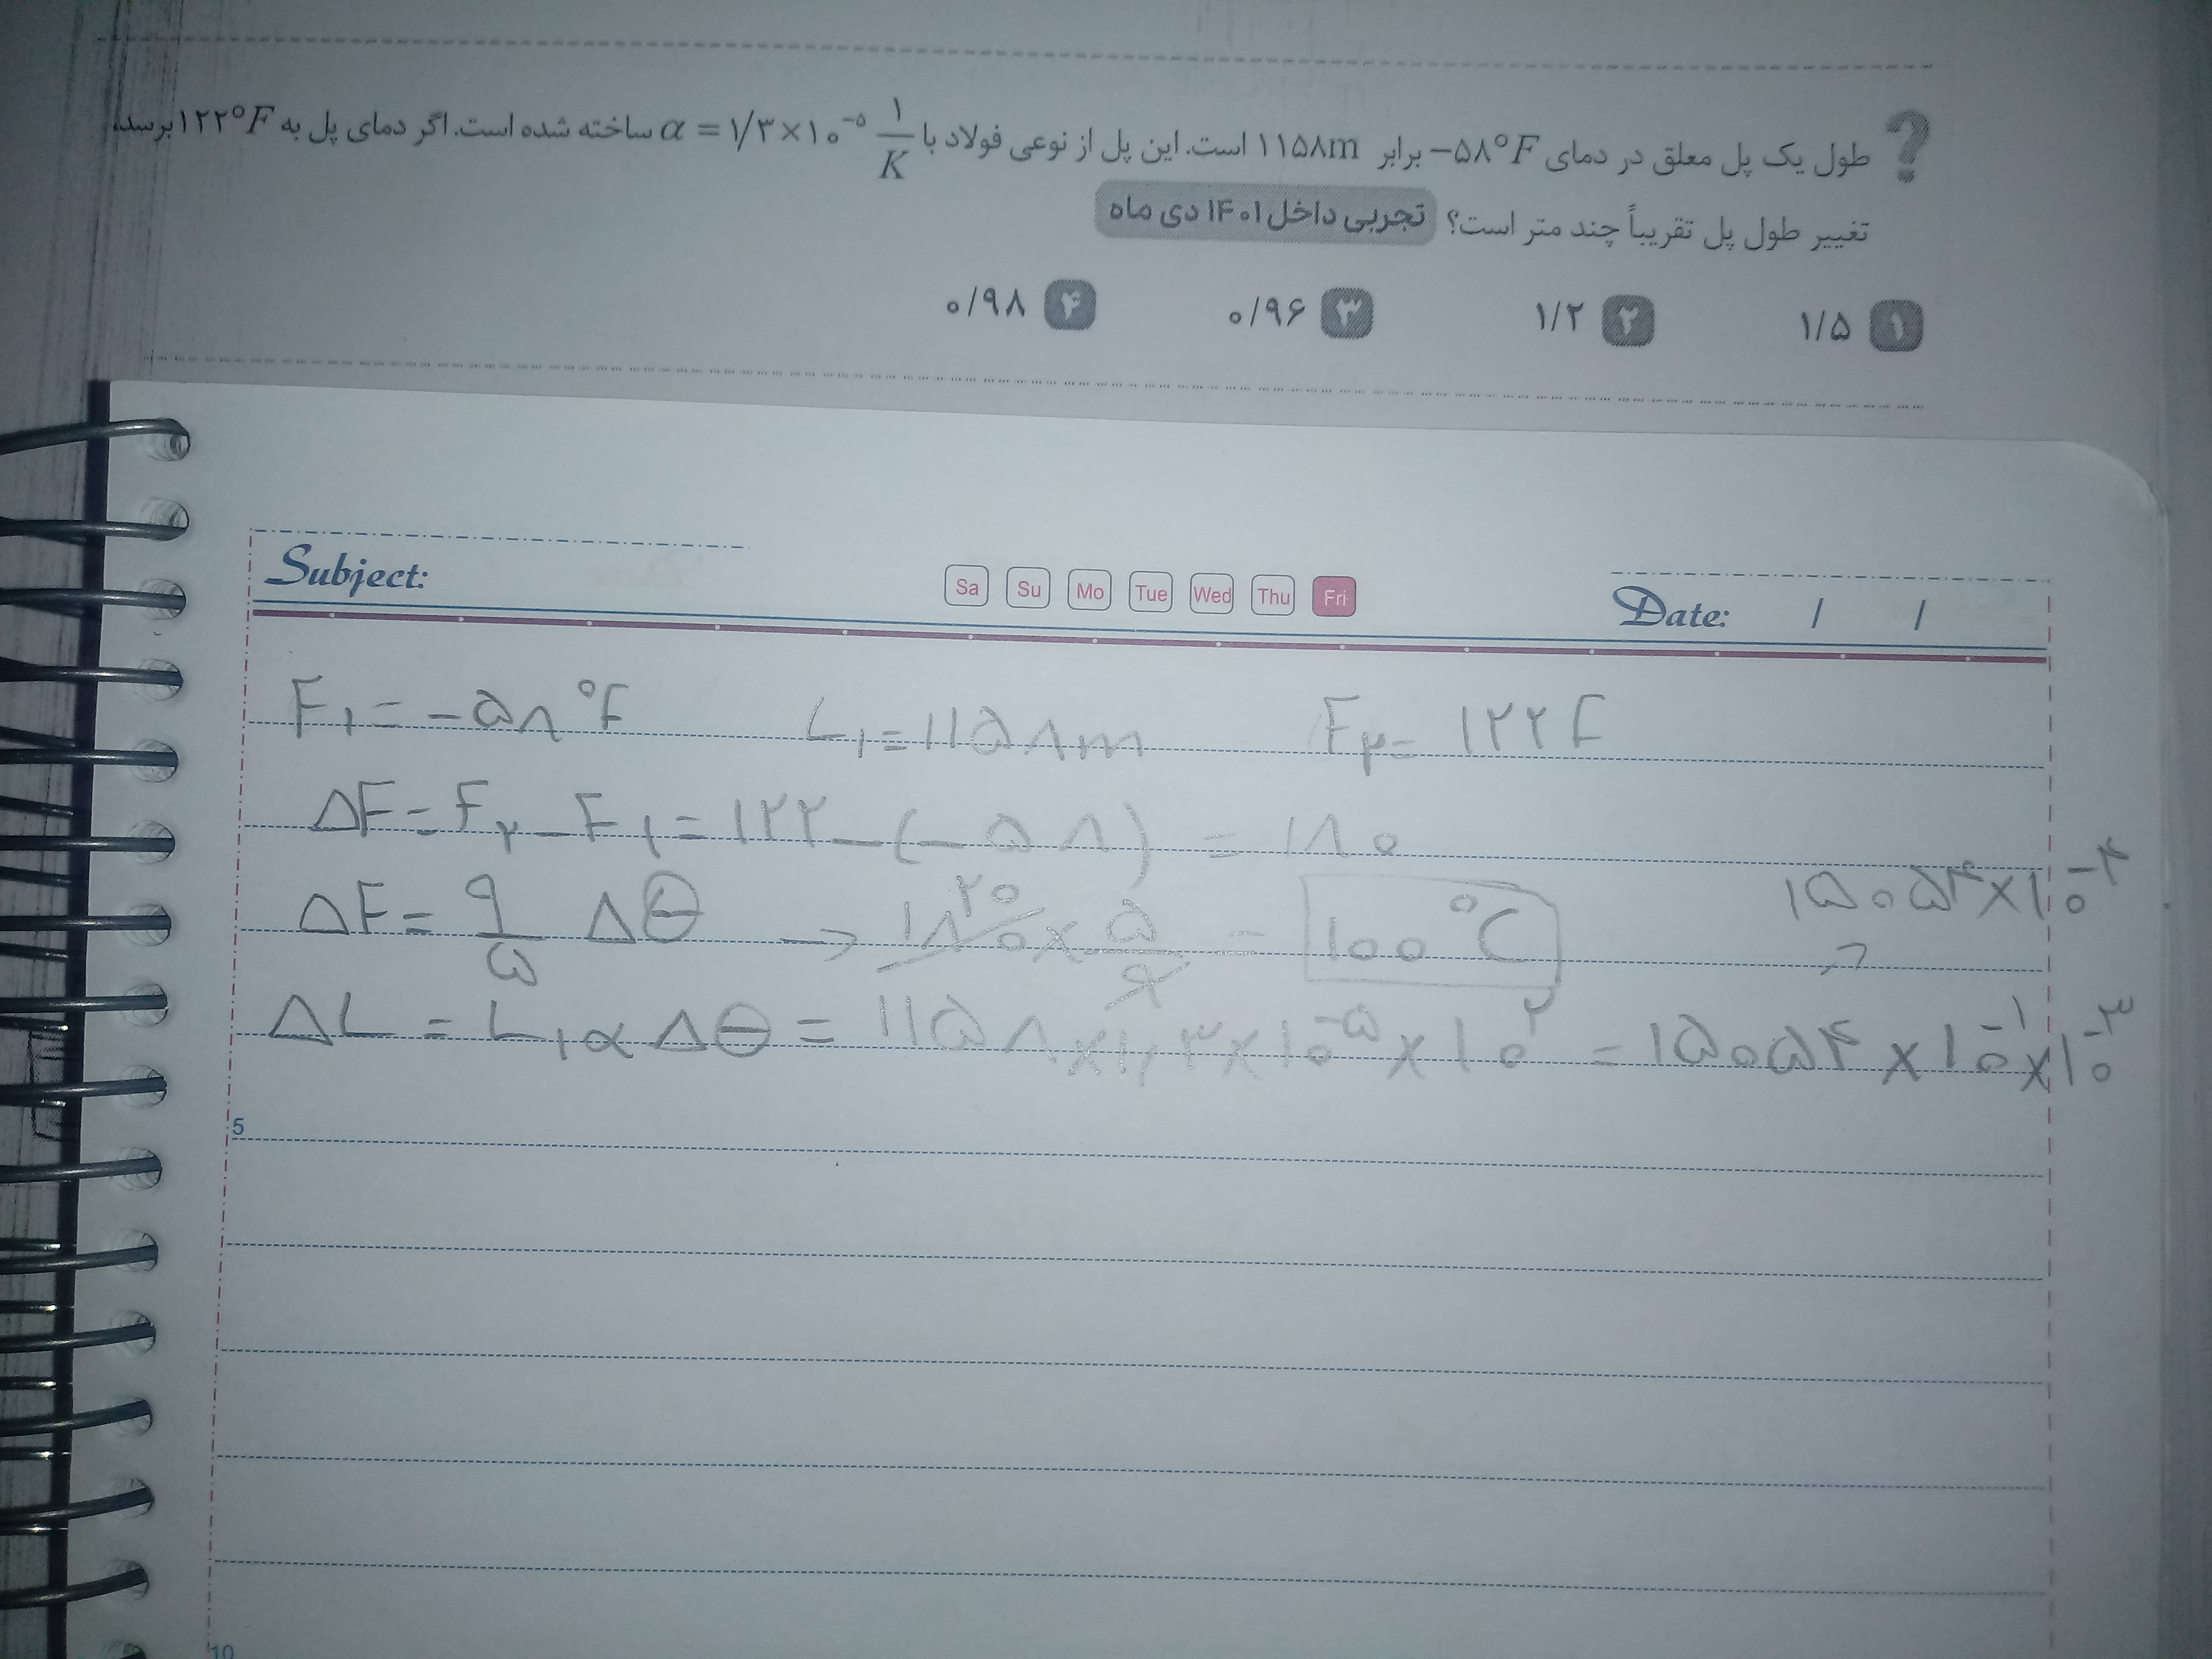 طول یک پل معلق در دمای −۵۸°F برابر ۱۱۵۸m است. این پل از نوعی فولاد با α = ۱/۳×۱۰⁻⁵ ۱/K ساخته شده است. اگر دمای پل به ۱۲۲°F برسد،
تغییر طول پل تقریباً چند متر است؟ تجربی داخل ۱۴۰۱ دی ماه
۱ ۱/۵ ۲ ۱/۲ ۳ ۰/۹۶ ۴ ۰/۹۸
Subject: Sa Su Mo Tue Wed Thu Fri Date: / /
F₁ = −۵۸°F L₁ = ۱۱۵۸m F₂ = ۱۲۲F
ΔF = F₂ − F₁ = ۱۲۲ − (−۵۸) = ۱۸۰
ΔF = ۹/۵ Δθ → ۱۸۰ ۲۰ × ۵/۹ = ۱۰۰°C
۱۵۰۵۴×۱۰⁻⁴
ΔL = L₁αΔθ = ۱۱۵۸×۱,۳×۱۰⁻⁵×۱۰² = ۱۵۰۵۴×۱۰⁻¹×۱۰⁻³
5
10